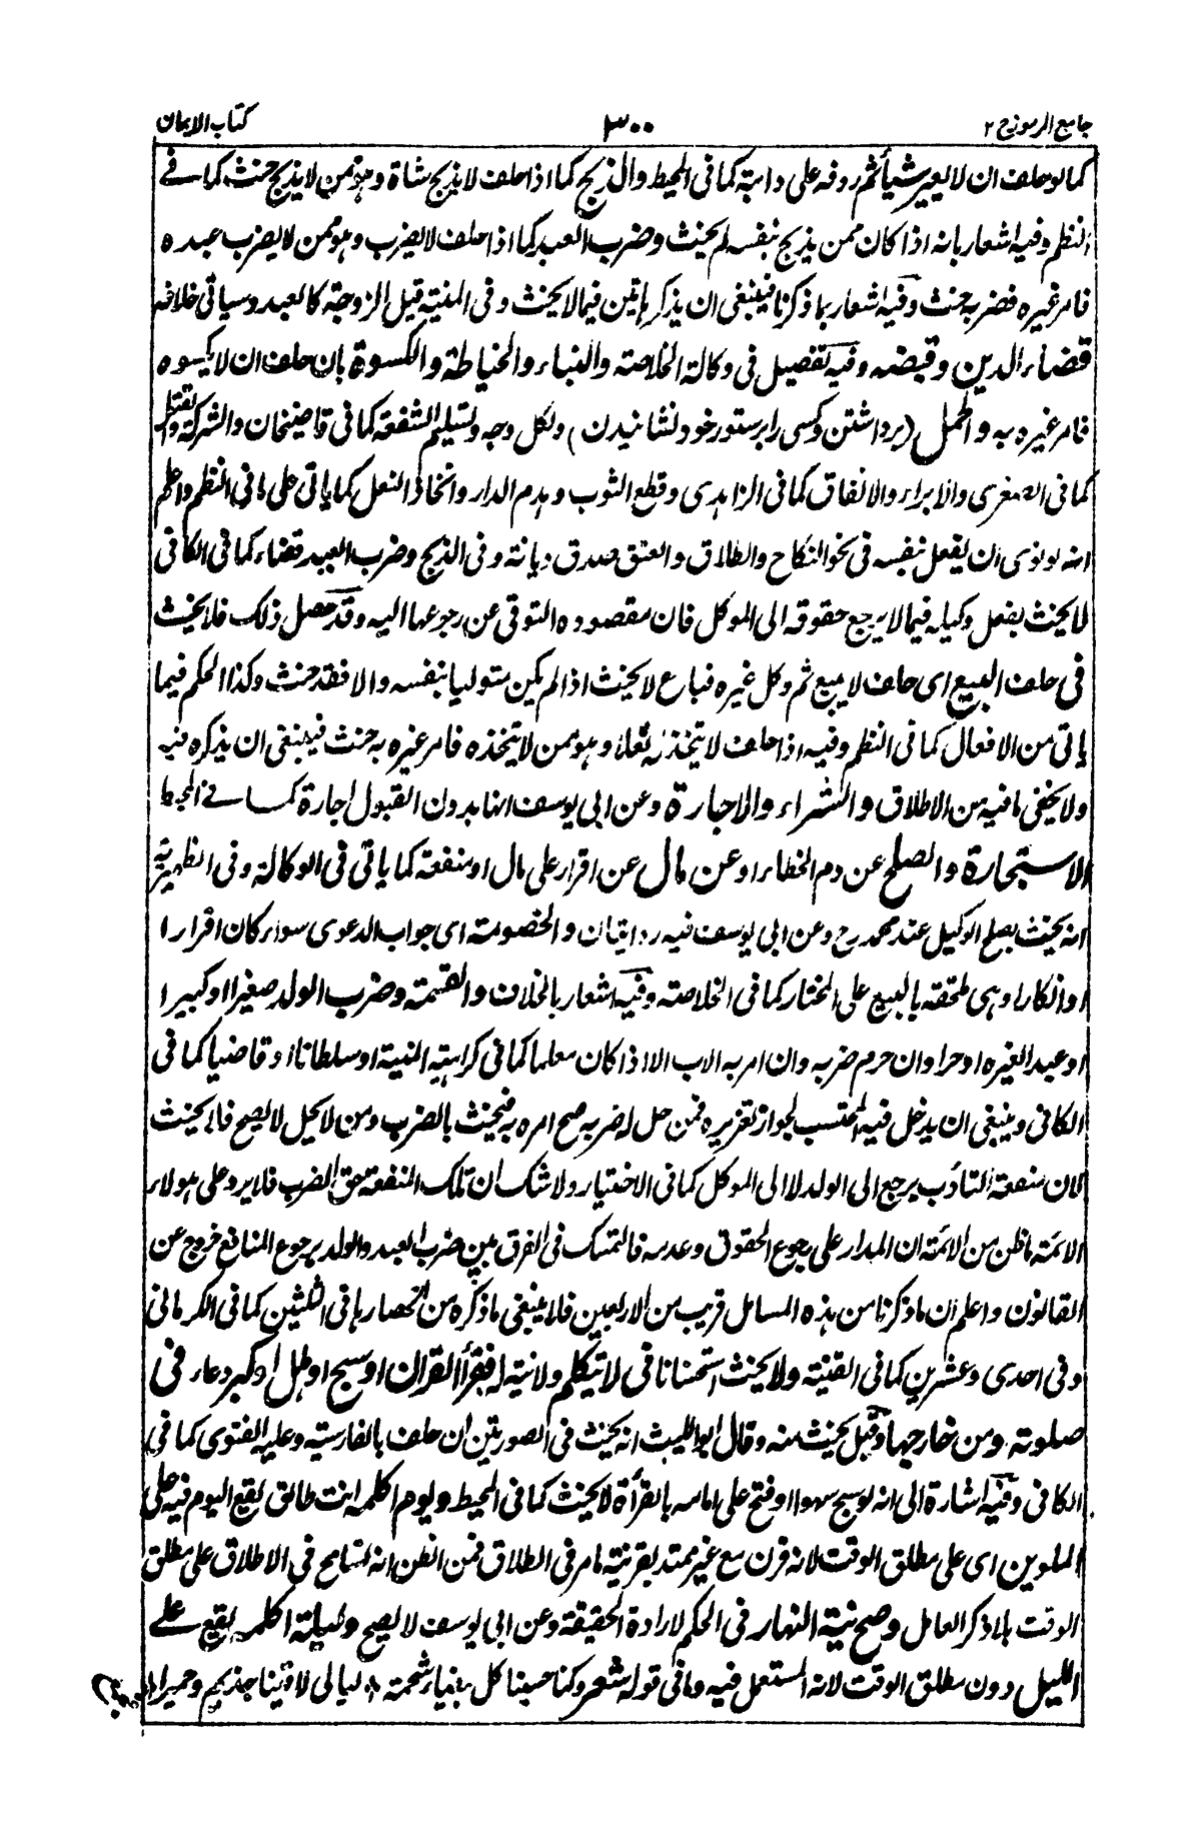 جامع الرموز ج ٢ ٣٠٠ كتاب الايمان
كما لو حلف ان لا يعير شيأ ثم ردفه على دابته كما فى المحيط والذبح كما اذا حلف لا يذبح شاة وهو ممن لا يذبح حنث كما فے
النظم وفيه اشعار بانه اذا كان ممن يذبح بنفسه لم يحنث وضرب العبد كما اذا حلف لا يضرب وهو ممن لا يضرب عبده
فامر غيره فضربه حنث وفيه اشعار بما ذكرنا فينبغى ان يذكر هاتين فيما لا يحنث وفى المنية قيل الزوجة كالعبد وسياتى خلافه
قضاء الدين وقبضه وفيه تفصيل فى وكالة الخلاصة والبناء والخياطة والكسوة بان حلف ان لا يكسوه
فامر غيره به والحمل (برداشتن وكسى را برستور خود نشانيدن) ولكل وجه وتسليم الشفعة كما فى قاضيخان والشركة
كما فى الصغرى والابراء والانفاق كما فى الزاهدى وقطع الثوب وهدم الدار واتخاذ النعل كما ياتى على ما فى النظم واعلم
انه لو نوى ان يفعل بنفسه فى نحو النكاح والطلاق والعتق صدق ديانة وفى الذبح وضرب العبد قضاء كما فى الكافى
لا يحنث بفعل وكيله فيما لا يرجع حقوقه الى الموكل فان مقصوده التوقى عن رجوعها اليه وقد حصل ذلك فلا يحنث
فى حلف البيع اى حلف لا يبيع ثم وكل غيره فباع لا يحنث اذا لم يكن متوليا بنفسه والا فقد حنث وكذا الحكم فيما
ياتى من الافعال كما فى النظم وفيه اذا حلف لا يتخذ نعلا وهو ممن لا يتخذه فامر غيره به حنث فينبغى ان يذكره فيه
ولا يخفى ما فيه من الاطلاق والشراء والاجارة وعن ابى يوسف انها بدون القبول اجارة كما فے المحيط
الاستجارة والصلح عن دم الخطاء او عن مال عن اقرار على مال او منفعة كما ياتى فى الوكالة وفى الظهيرية
انه يحنث بصلح الوكيل عند محمد رح وعن ابى يوسف فيه روايتان والخصومة اى جواب الدعوى سواء كان اقرارا
او انكارا وهى ملحقة بالبيع على المختار كما فى الخلاصة وفيه اشعار بالخلاف والقسمة وضرب الولد صغيرا او كبيرا
او عبد الغيره او حرا وان حرم ضربه وان امر به الاب الا اذا كان معلما كما فى كراهية المنية او سلطانا او قاضيا كما فى
الكافى وينبغى ان يدخل فيه المحتسب لجواز تعزيره فمن حل له ضربه صح امره به فيحنث بالضرب ومن لا يحل لا يصح فلا يحنث
لان منفعة التأدب يرجع الى الولد لا الى الموكل كما فى الاختيار ولا شك ان تلك المنفعة حق الضرب فلا يرد على هولاء
الائمة ما ظن من الائمة ان المدار على رجوع الحقوق وعدمه فالتمسك فى الفرق بين ضرب العبد والولد برجوع المنافع خروج عن
القانون واعلم ان ما ذكرنا من هذه المسائل قريب من الاربعين فلا ينبغى ما ذكره من انحصارها فى الثلثين كما فى الكرمانى
وفى احدى وعشرين كما فى القنية ولا يحنث استحسانا فى لا يتكلم ولا نية له فقرأ القران او سبح او هلل او كبر دعاء فى
صلوته ومن خارجها وقيل يحنث منه وقال ابو الليث انه يحنث فى الصورتين ان حلف بالفارسية وعليه الفتوى كما فى
الكافى وفيه اشارة الى انه لو سبح سهوا او فتح على امامه بالقرأة لا يحنث كما فى المحيط ويوم اكلمه انت طالق يقع اليوم فيه على
الملوين اى على مطلق الوقت لانه قرن مع غير ممتد بقرينة ما مر فى الطلاق فمن الظن انه تسامح فى الاطلاق على مطلق
الوقت بلا ذكر العامل وصح نية النهار فى الحكم لارادة الحقيقة وعن ابى يوسف لا يصح وليلة اكلمه يقع علے
الليل دون مطلق الوقت لانه المستعمل فيه وما فى قوله شعر وكنا حسبنا كل بيضاء شحمة ٨ ليالى لاقينا جذيم وحميرا